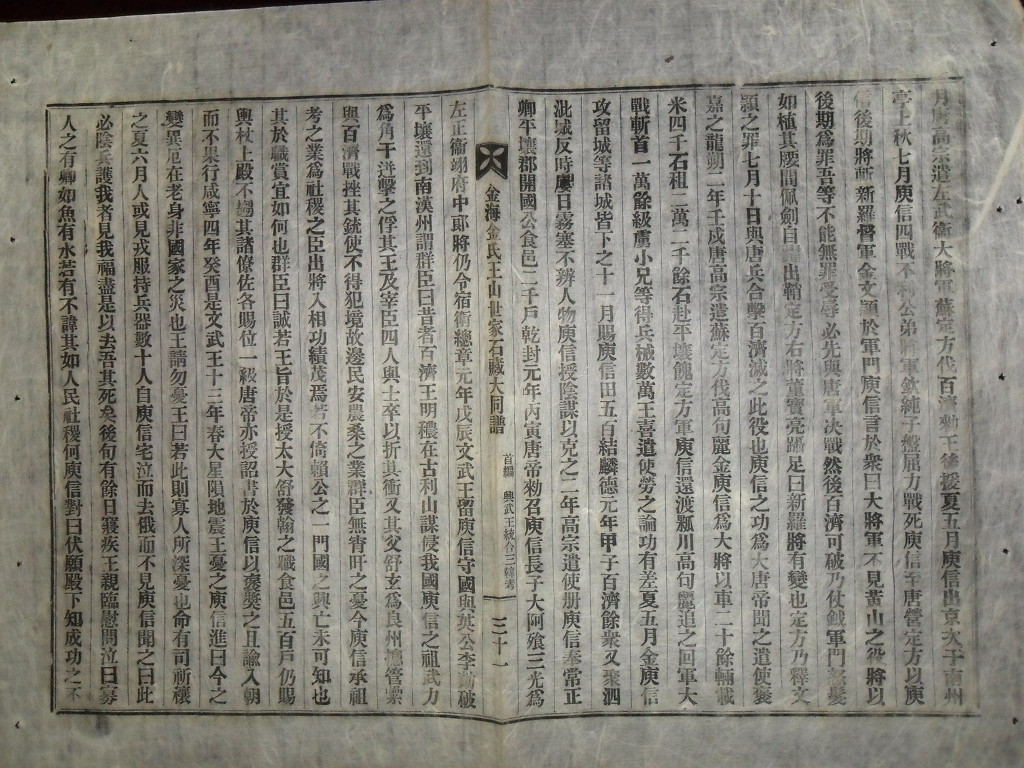 月唐高宗遣左武衛大將軍蘇定方伐百濟勅王後援夏五月庾信出京次于南州
亭上秋七月庾信四戰不利公弟將軍欽純子盤屈力戰死庾信至唐營定方以庾
信後期將斬新羅督軍金文穎於軍門庾信言於衆曰大將軍不見黃山之役將以
後期爲罪吾等不能無罪受辱必先與唐軍決戰然後百濟可破乃仗鉞軍門怒髮
如植其腰間佩劍自躍出鞘定方右將董寶亮躡足曰新羅將有變也定方乃釋文
穎之罪七月十日與唐兵合擊百濟滅之此役也庾信之功爲大唐帝聞之遣使褒
嘉之龍朔二年壬戌唐高宗遣蘇定方伐高句麗金庾信爲大將以車二十餘輛載
米四千石租二萬二千餘石赴平壤餽定方軍庾信還渡瓢川高句麗追之回軍大
戰斬首一萬餘級虜小兄等得兵械數萬王喜遣使勞之論功有差夏五月金庾信
攻留城等諸城皆下之十一月賜庾信田五百結麟德元年甲子百濟餘衆又聚泗
沘城反時屢日霧塞不辨人物庾信授陰謀以克之二年高宗遣使册庾信奉常正
卿平壤郡開國公食邑二千戶乾封元年丙寅唐帝勅召庾信長子大阿飱三光爲
金海金氏王山世家石藏大同譜
首編 興武王統合三韓考
三十一
左正衛翊府中郞將仍令宿衛總章元年戊辰文武王留庾信守國與英公李勣破
平壤還到南漢州謂群臣曰昔者百濟王明穠在古利山謀侵我國庾信之祖武力
爲角干逆擊之俘其王及宰臣四人與士卒以折其衝又其父舒玄爲良州摠管累
與百濟戰挫其銳使不得犯境故邊民安農桑之業群臣無宵旰之憂今庾信承祖
考之業爲社稷之臣出將入相功績茂焉若不倚賴公之一門國之興亡未可知也
其於職賞宜如何也群臣曰誠若王旨於是授太大舒發翰之職食邑五百戶仍賜
輿杖上殿不趨其諸僚佐各賜位一級唐帝亦授詔書於庾信以褒奬之且諭入朝
而不果行咸寧四年癸酉是文武王十三年春大星隕地震王憂之庾信進曰今之
變異厄在老身非國家之災也王請勿憂王曰若此則寡人所深憂也命有司祈禳
之夏六月人或見戎服持兵器數十人自庾信宅泣而去俄而不見庾信聞之曰此
必陰兵護我者見我福盡是以去吾其死矣後旬有餘日寢疾王親臨慰問泣曰寡
人之有卿如魚有水若有不諱其如人民社稷何庾信對曰伏願殿下知成功之不